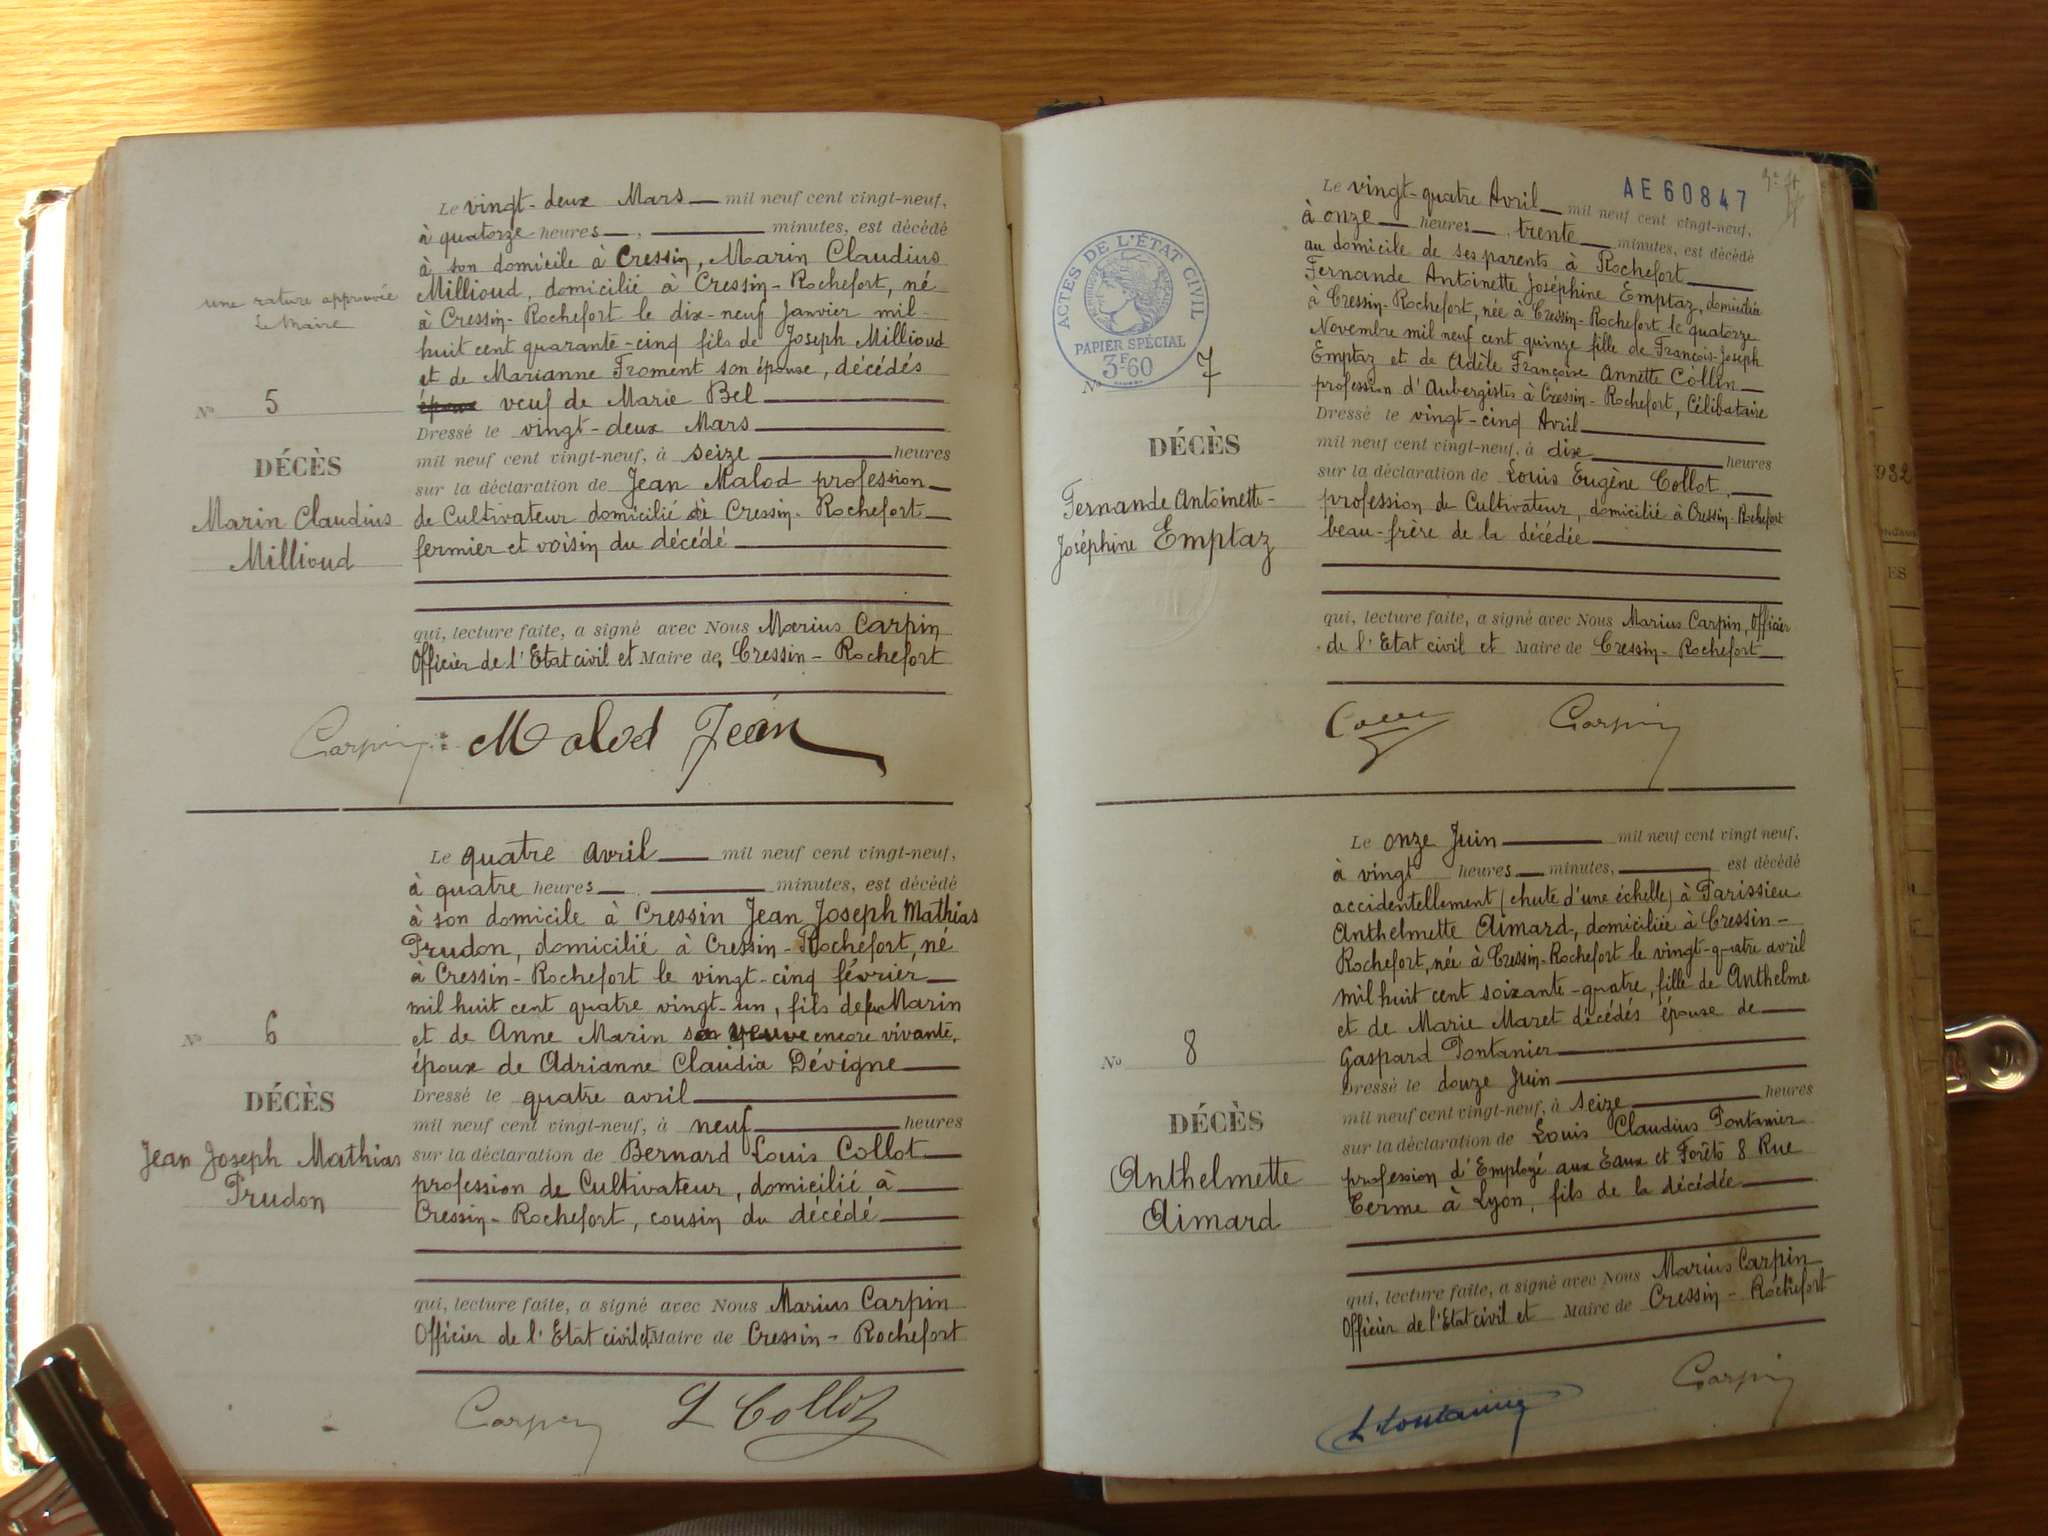 Le vingt-deux Mars mil neuf cent vingt-neuf,
à quatorze heures, minutes, est décédé
à son domicile à Cressin, Marin Claudius
Millioud, domicilié à Cressin-Rochefort, né
à Cressin-Rochefort le dix-neuf Janvier mil
huit cent quarante-cinq fils de Joseph Millioud
et de Marianne Froment son épouse, décédés
époux veuf de Marie Bel
Dressé le vingt-deux Mars
mil neuf cent vingt-neuf, à seize heures
sur la déclaration de Jean Malod profession
de Cultivateur domicilié à Cressin-Rochefort
fermier et voisin du décédé
qui, lecture faite, a signé avec Nous Marius Carpin
Officier de l'Etat civil et Maire de Cressin-Rochefort
une rature approuvée
Le Maire
No 5
DÉCÈS
Marin Claudius
Millioud
Carpin Malod Jean
Le quatre avril mil neuf cent vingt-neuf,
à quatre heures, minutes, est décédé
à son domicile à Cressin Jean Joseph Mathias
Prudon, domicilié à Cressin-Rochefort, né
à Cressin-Rochefort le vingt-cinq février
mil huit cent quatre vingt-un, fils de feu Marin
et de Anne Marin sa veuve encore vivante,
époux de Adrianne Claudia Dévigne
Dressé le quatre avril
mil neuf cent vingt-neuf, à neuf heures
sur la déclaration de Bernard Louis Collot
profession de Cultivateur, domicilié à
Cressin-Rochefort, cousin du décédé
qui, lecture faite, a signé avec Nous Marius Carpin
Officier de l'Etat civil et Maire de Cressin-Rochefort
No 6
DÉCÈS
Jean Joseph Mathias
Prudon
Carpin L Collot
AE 60847
Le vingt-quatre Avril mil neuf cent vingt-neuf,
à onze heures, trente minutes, est décédé
au domicile de ses parents à Rochefort
Fernande Antoinette Joséphine Emptaz, domiciliée
à Cressin-Rochefort, née à Cressin-Rochefort le quatorze
Novembre mil neuf cent quinze fille de François-Joseph
Emptaz et de Adèle Françoise Annette Collin
profession d'Aubergistes à Cressin-Rochefort, Célibataire
Dressé le vingt-cinq Avril
mil neuf cent vingt-neuf, à dix heures
sur la déclaration de Louis Eugène Collot,
profession de Cultivateur, domicilié à Cressin-Rochefort
beau-frère de la décédée
qui, lecture faite, a signé avec Nous Marius Carpin, Officier
de l'Etat civil et Maire de Cressin-Rochefort
ACTES DE L'ÉTAT CIVIL
PAPIER SPÉCIAL
3F60
No 7
DÉCÈS
Fernande Antoinette-
Joséphine Emptaz
Carpin
Le onze Juin mil neuf cent vingt neuf,
à vingt heures minutes, est décédé
accidentellement (chute d'une échelle) à Parissieu
Anthelmette Aimard, domiciliée à Cressin-
Rochefort, née à Cressin-Rochefort le vingt-quatre avril
mil huit cent soixante-quatre, fille de Anthelme
et de Marie Maret décédés épouse de
Gaspard Pontanier
Dressé le douze Juin
mil neuf cent vingt-neuf, à seize heures
sur la déclaration de Louis Claudius Pontanier
profession d'Employé aux Eaux et Forêts 8 Rue
Terme à Lyon, fils de la décédée
qui, lecture faite, a signé avec Nous Marius Carpin
Officier de l'Etat civil et Maire de Cressin-Rochefort
No 8
DÉCÈS
Anthelmette
Aimard
Carpin
932
ES